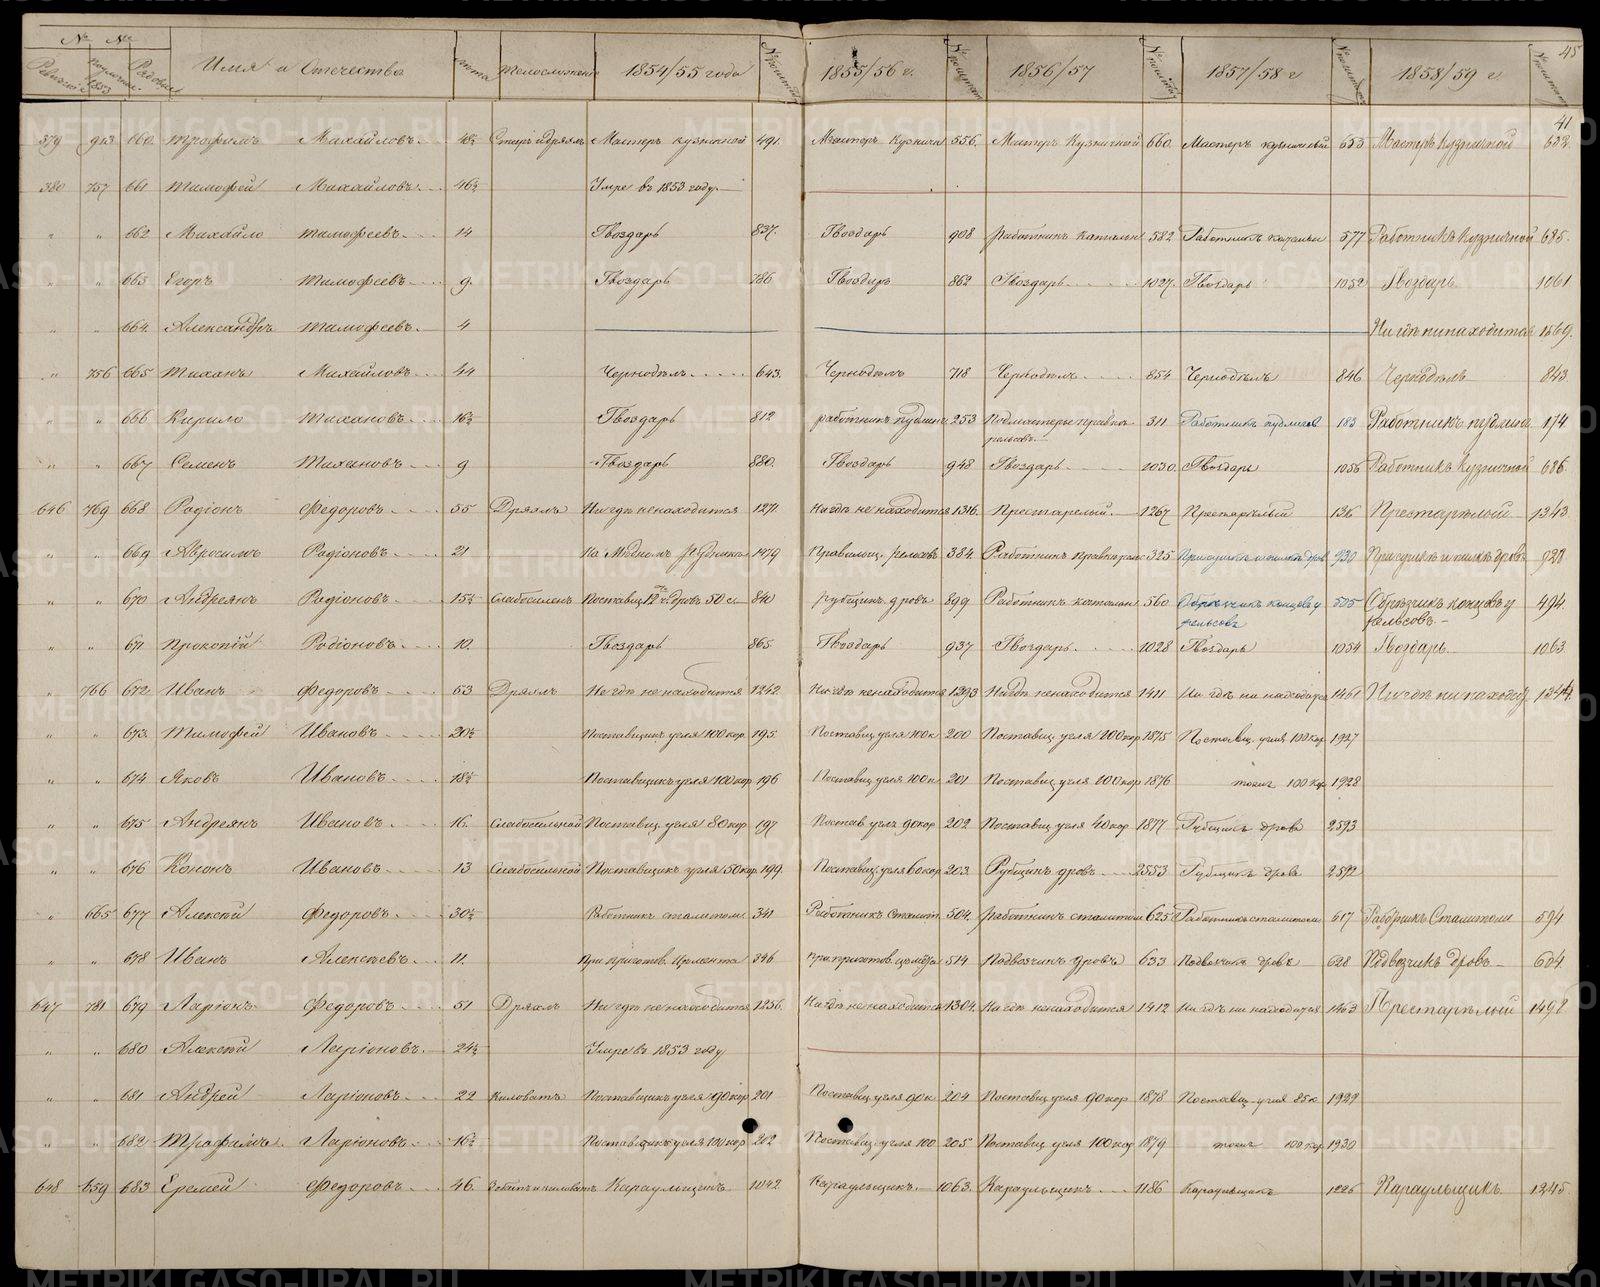 № № Имя и Отчество Лета Телосложение 1854/55 года 1855/56 г. 1856/57 1857/58 г 1858/59 г. 45
Ревизск. 1853 Рядовые
41
379 913 660 Трофимъ Михайловъ 48½ Старъ и дряхлъ Мастеръ кузничной 491. Мастеръ Кузничн 556. Мастеръ Кузничной 660. Мастеръ кузничный 653 Мастеръ Кузничной 632.
380 757 661 Тимофей Михайловъ 46½ Умре въ 1853 году.
" " 662 Михайло Тимофеевъ 14 Гвоздарь 837. Гвоздарь 908 работникъ 582 Работникъ 577 Работникъ Кузничной 685.
" " 663 Егоръ Тимофеевъ 9. Гвоздарь 786 Гвоздарь 862 Гвоздарь 1027. Гвоздарь 1052 Гвоздарь 1061
" " 664 Александръ Тимофеевъ 4 Ни гдѣ ни находится 1569.
" 756 665 Тиханъ Михайловъ 44 Чернодѣлъ 643. Чернодѣлъ 718 Чернодѣлъ 854 Чернодѣлъ 846 Чернодѣлъ 843
" " 666 Кирило Тихановъ 16½ Гвоздарь 812 работникъ пудлинг 253 Подмастерье правки 311 Работникъ пудлигов 183 Работникъ пудлинг 174
рельсовъ
" " 667 Семенъ Тихановъ 9 Гвоздарь 880. Гвоздарь 948 Гвоздарь 1030 Гвоздарь 1056 Работникъ Кузничной 686
646 769 668 Родіонъ Федоровъ 55 Дряхлъ Ни гдѣ ненаходится 1271 Ни гдѣ не находится 1316. Престарелый. 1267 Престарѣлый 136 Престарѣлый 1343
" " 669 Абросимъ Родіоновъ 21 На Мѣдномъ Рудникѣ 1479 Правильщ. рельсовъ 384. Работникъ правки рельс 325 930 При сушкѣ и пилкѣ дровъ 928
" " 670 Андреянъ Родіоновъ 15½ Слабосиленъ Поставщ 12 ч. дровъ 50 с. 840 рубщикъ дровъ 899 Работникъ 560 Обрѣзчикъ концовъ у 505 Обрѣзчикъ концовъ у 494.
рельсовъ рельсовъ
" " 671 Прокопій Родіоновъ 10. Гвоздарь 865 Гвоздарь 937 Гвоздарь 1028 Гвоздарь 1054 Гвоздарь 1063
" 766 672 Иванъ Федоровъ 63 Дряхлъ Ни гдѣ не находится 1242. Ни гдѣ ненаходится 1393 Ни гдѣ ненаходится 1411 Ни гдѣ ни находится 1461 Ни гдѣ ни находит 1344.
" " 673 Тимофей Ивановъ 20½ Поставщикъ угля 100 кор. 195 Поставщ угля 100 к 200 Поставщ. угля 200 кор 1875 Поставщ. угля 100 кор 1927
" " 674 Яковъ Ивановъ 18½ Поставщикъ угля 100 кор 196 Поставщ угля 100 к 201 Поставщ угля 200 кор 1876 тоже 100 кор 1928
" " 675 Андреянъ Ивановъ 16. Слабосильной Поставщ. угля 80 кор 197 Постав угля 90 кор 202 Поставщ угля 40 кор 1877 Рубщикъ дровъ 2593
" " 676 Кононъ Ивановъ 13 Слабосильной Поставщикъ угля 50 кор 199 Поставщ. угля 60 кор 203 Рубщикъ дровъ 2553 Рубщикъ дровъ 2592
" 665 677 Алексѣй Федоровъ 30½ Работникъ сталитом 341 Работникъ Сталит 504. работникъ сталитом 625 Работникъ сталитом 617 Работникъ Сталитом 594
" " 678 Иванъ Алексѣевъ 11. При приготов. Цемента 346 при приготов. цемента 514 Подвозчикъ дровъ 633 Подвозчикъ дровъ 628 Подвозчикъ дровъ 604.
647 781 679 Ларіонъ Федоровъ 51 Дряхлъ Ни гдѣ не находится 1256. Ни гдѣ не находится 1304. Ни гдѣ ненаходится 1412 Ни гдѣ ни находится 1463 Престарѣлый 1492
" " 680 Алексѣй Ларіоновъ 24½ Умре въ 1853 году
" " 681 Андрей Ларіоновъ 22 Киловатъ Поставщикъ угля 90 кор 201 Поставщ угля 90 к 204 Поставщ угля 90 кор 1878 Поставщ угля 85 к 1929
" " 682 Трофимъ Ларіоновъ 16½ Поставщикъ угля 100 кор 202 Поставщ. угля 100 205 Поставщ угля 100 кор 1879 тоже 100 кор 1930
648 659 683 Еремей Федоровъ 46. Караульщикъ 1042. Караульщикъ 1063. Караульщикъ 1186 Караульщикъ 1226 Караульщикъ 1245.
METRIKI.GASO-URAL.RU